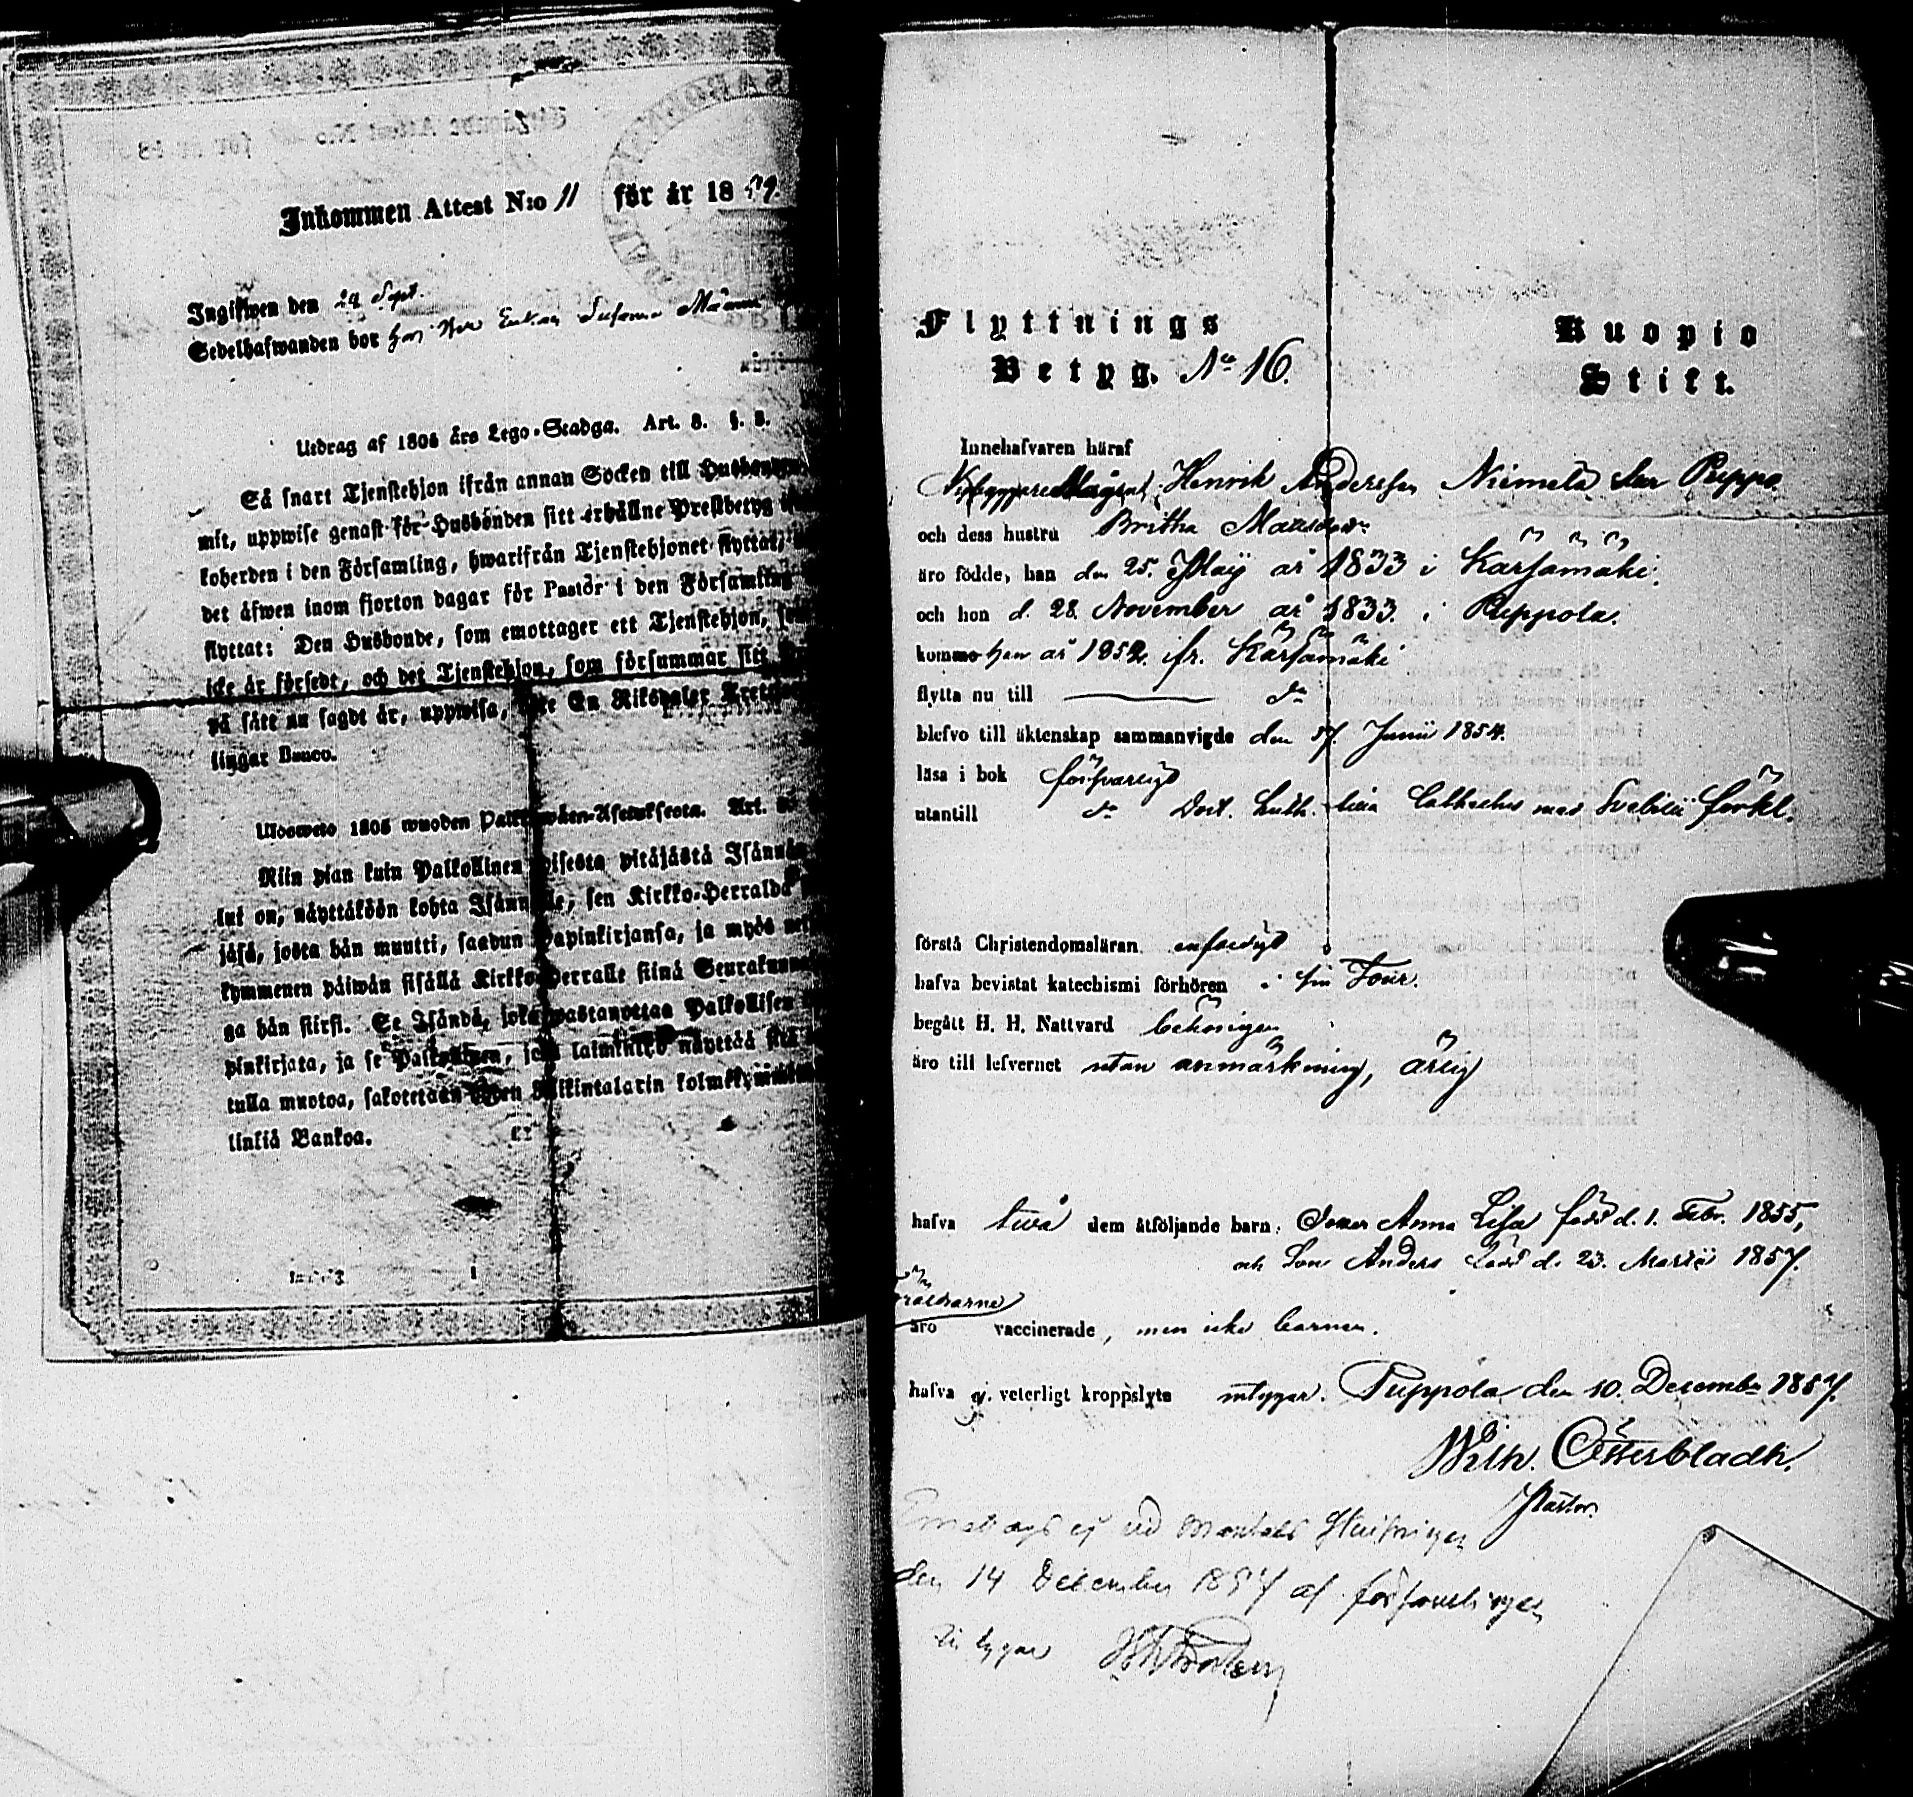 Inkommen Attest N:o 11 för år 18
Ingifwen den 29 Sept.
Sedelhafwanden bor hos Enkan Susanna
Utdrag af 1805 års Lego-Stadga. Art. 8. §. 3.
Så snart Tjenstehjon ifrån annan Socken till Husbonden
mit, uppwise genast för Husbonden sitt erhållne Prestbetyg
koherden i den Församling, hwarifrån Tjenstehjonet flyttat,
det äfwen inom fjorton dagar för Pastor i den Församling
flyttat: Den Husbonde, som emottager ett Tjenstehjon,
icke är försedt, och det Tjenstehjon, som försummar sitt
på sätt nu sagdt är, uppwisa, En Riksdaler
lingar Banco.
Ulosweto 1805 wuoden Art.
Niin pian kuin Palkollinen toisesta pitäjästä Isännän
lut on, näyttäköön kohta Isännälle, sen Kirkko-Herralda
jäsä, josta hän muutti, saadun Papinkirjansa, ja myös
kymmenen päiwän sisällä Kirkko-Herralle siinä Seurakunna
ga hän siirsi. Se Isändä, joka wastanottaa Palkollisen
pinkirjata, ja se Palkollinen, joka laiminlyö näyttää sitä
tulla muotoa, sakotetaan Riikintalarin kolmekymmen
linkiä Bankoa.
Flyttnings Kuopio
Betyg. No 16. Stift.
Innehafvaren häraf
Henrik Andersson Niemelä
och dess hustru Britha Mattsdr
äro födde, han den 25. May år 1833 i Kärsämäki;
och hon d. 28. November år 1833. i Puppola.
kommo han år 1852. fr. Kärsämäki
flytta nu till do
blefvo till äktenskap sammanvigde den 17. Junii 1854.
läsa i bok försvarligt
utantill do Doct. Luth. lilla Catheches med Svebilii förkl.
förstå Christendomsläran enfaldigt
hafva bevistat katechismi förhören i sin Tour.
begått H. H. Nattvard behörigen
äro till lefvernet utan anmärkning, ärlig
hafva två dem åtföljande barn: Dotter Anna Lisa född d. 1. Febr. 1855,
och Son Anders född d. 23. Martii 1857.
Föräldrarne
äro vaccinerade, men icke barnen.
hafva ej. veterligt kroppslyte intygar. Puppola den 10. December 1857.
Wilh. Österbladh.
Pastor.
den 14 December 1857 af församlingen